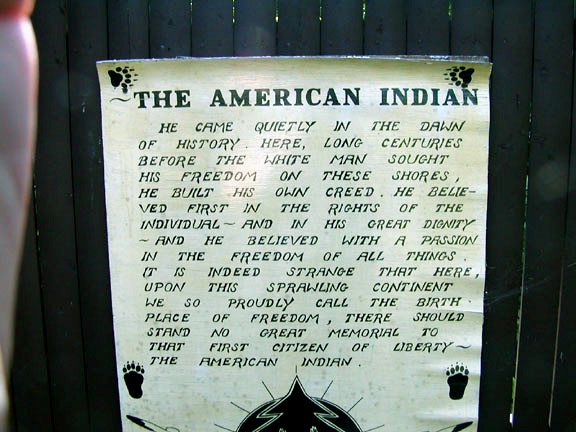 ~THE AMERICAN INDIAN
HE CAME QUIETLY IN THE DAWN
OF HISTORY. HERE, LONG CENTURIES
BEFORE THE WHITE MAN SOUGHT
HIS FREEDOM ON THESE SHORES,
HE BUILT HIS OWN CREED. HE BELIE-
VED FIRST IN THE RIGHTS OF THE
INDIVIDUAL~ AND IN HIS GREAT DIGNITY
~ AND HE BELIEVED WITH A PASSION
IN THE FREEDOM OF ALL THINGS.
IT IS INDEED STRANGE THAT HERE,
UPON THIS SPRAWLING CONTINENT
WE SO PROUDLY CALL THE BIRTH-
PLACE OF FREEDOM, THERE SHOULD
STAND NO GREAT MEMORIAL TO
THAT FIRST CITIZEN OF LIBERTY~
THE AMERICAN INDIAN.